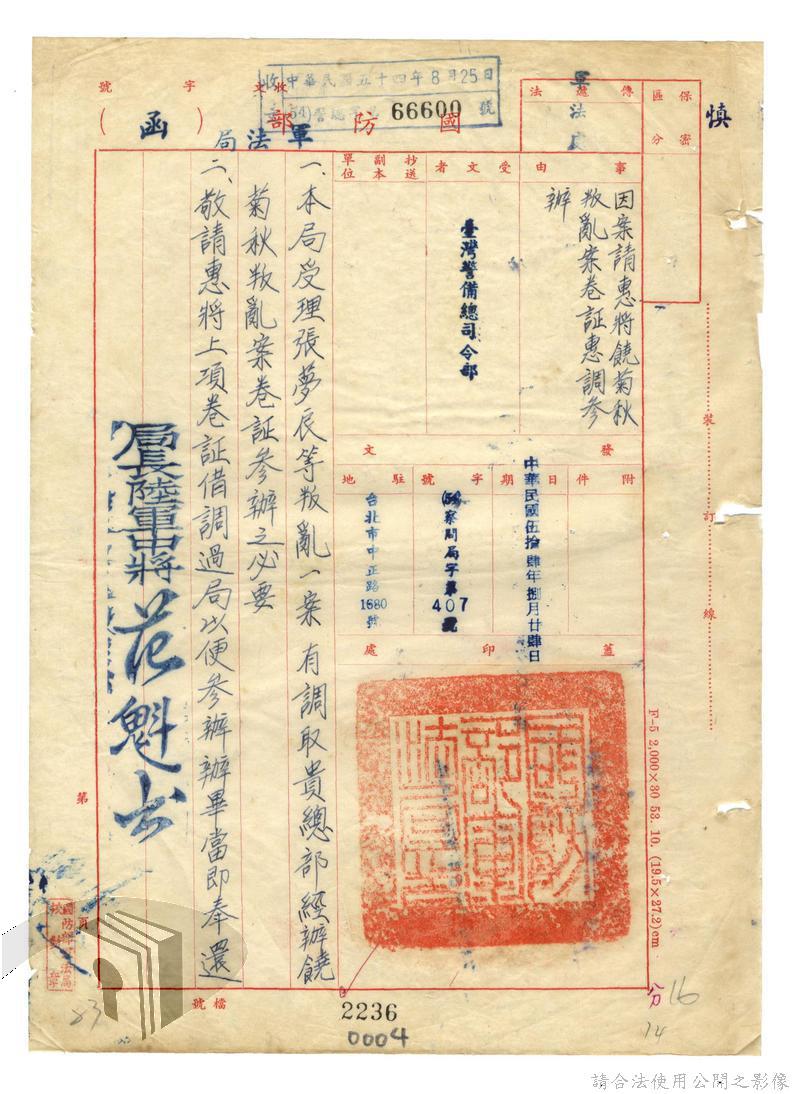 慎
保密
區分
傳遞法
軍法處
收文
中華民國五十四年8月25日
(54)警總軍
66600號
國防部
軍法局
(函)
字號
事由
因案請惠將饒菊秋
叛亂案卷証惠調參
辦
受文者
臺灣警備總司令部
抄送副本單位
發文
附件
日期
中華民國伍拾肆年捌月廿肆日
字號
(54)察問局字第
407
號
駐地
台北市中正路
1680
號
蓋印處
一、本局受理張夢辰等叛亂一案有調取貴總部經辦饒
菊秋叛亂案卷証參辦之必要
二、敬請惠將上項卷証借調過局以便參辦辦畢當即奉還
局長陸軍中將范魁書
裝訂線
F-5 2,000×30 53. 10. (19.5×27.2)cm
第
頁
檔號
國防部軍法局
校對章
2236
0004
83
16
14
請合法使用公開之影像